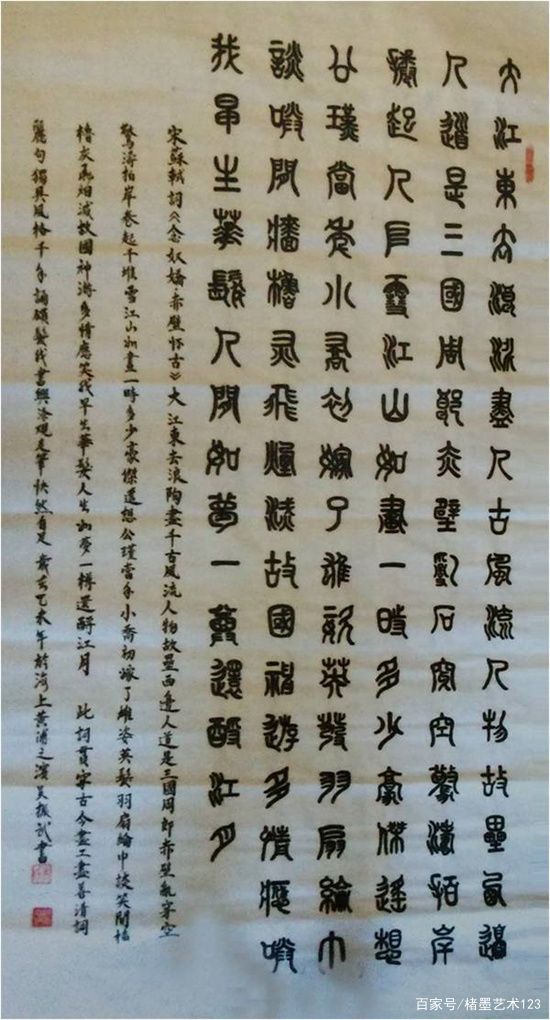 大江東去浪淘盡千古風流人物故壘西邊
人道是三國周郎赤壁亂石穿空驚濤拍岸
捲起千堆雪江山如畫一時多少豪傑遙想
公瑾當年小喬初嫁了雄姿英發羽扇綸巾
談笑間檣櫓灰飛煙滅故國神遊多情應笑
我早生華髮人間如夢一尊還酹江月
宋蘇軾詞《念奴嬌赤壁怀古》大江東去浪陶盡千古風流人物故壘西邊人道是三國周郎赤壁亂穿空
驚濤拍岸卷起千堆雪江山如畫一時多少豪傑遙想公瑾當年小喬初嫁了雄姿英髮羽扇綸巾談笑間檣
櫓灰飛烟滅故國神游多情應笑我早生華髮人生如夢一樽還酹江月 此詞貫穿古今盡工盡善清詞
麗句獨具風格千年誦頌 書興 硯走筆快然自足 歲在乙未年於海上黄浦之濱吳振武書
百家号/楮墨艺术123